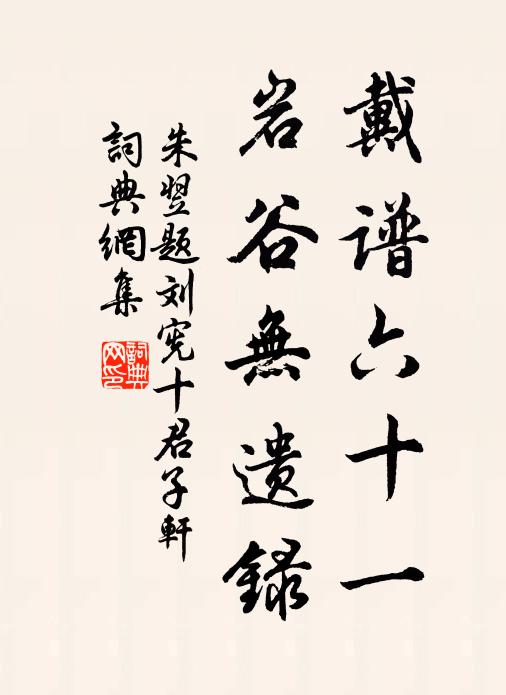 戴谱六十一
岩谷無遺録
朱翌题刘宪十君子軒
詞典網集
詞典網印